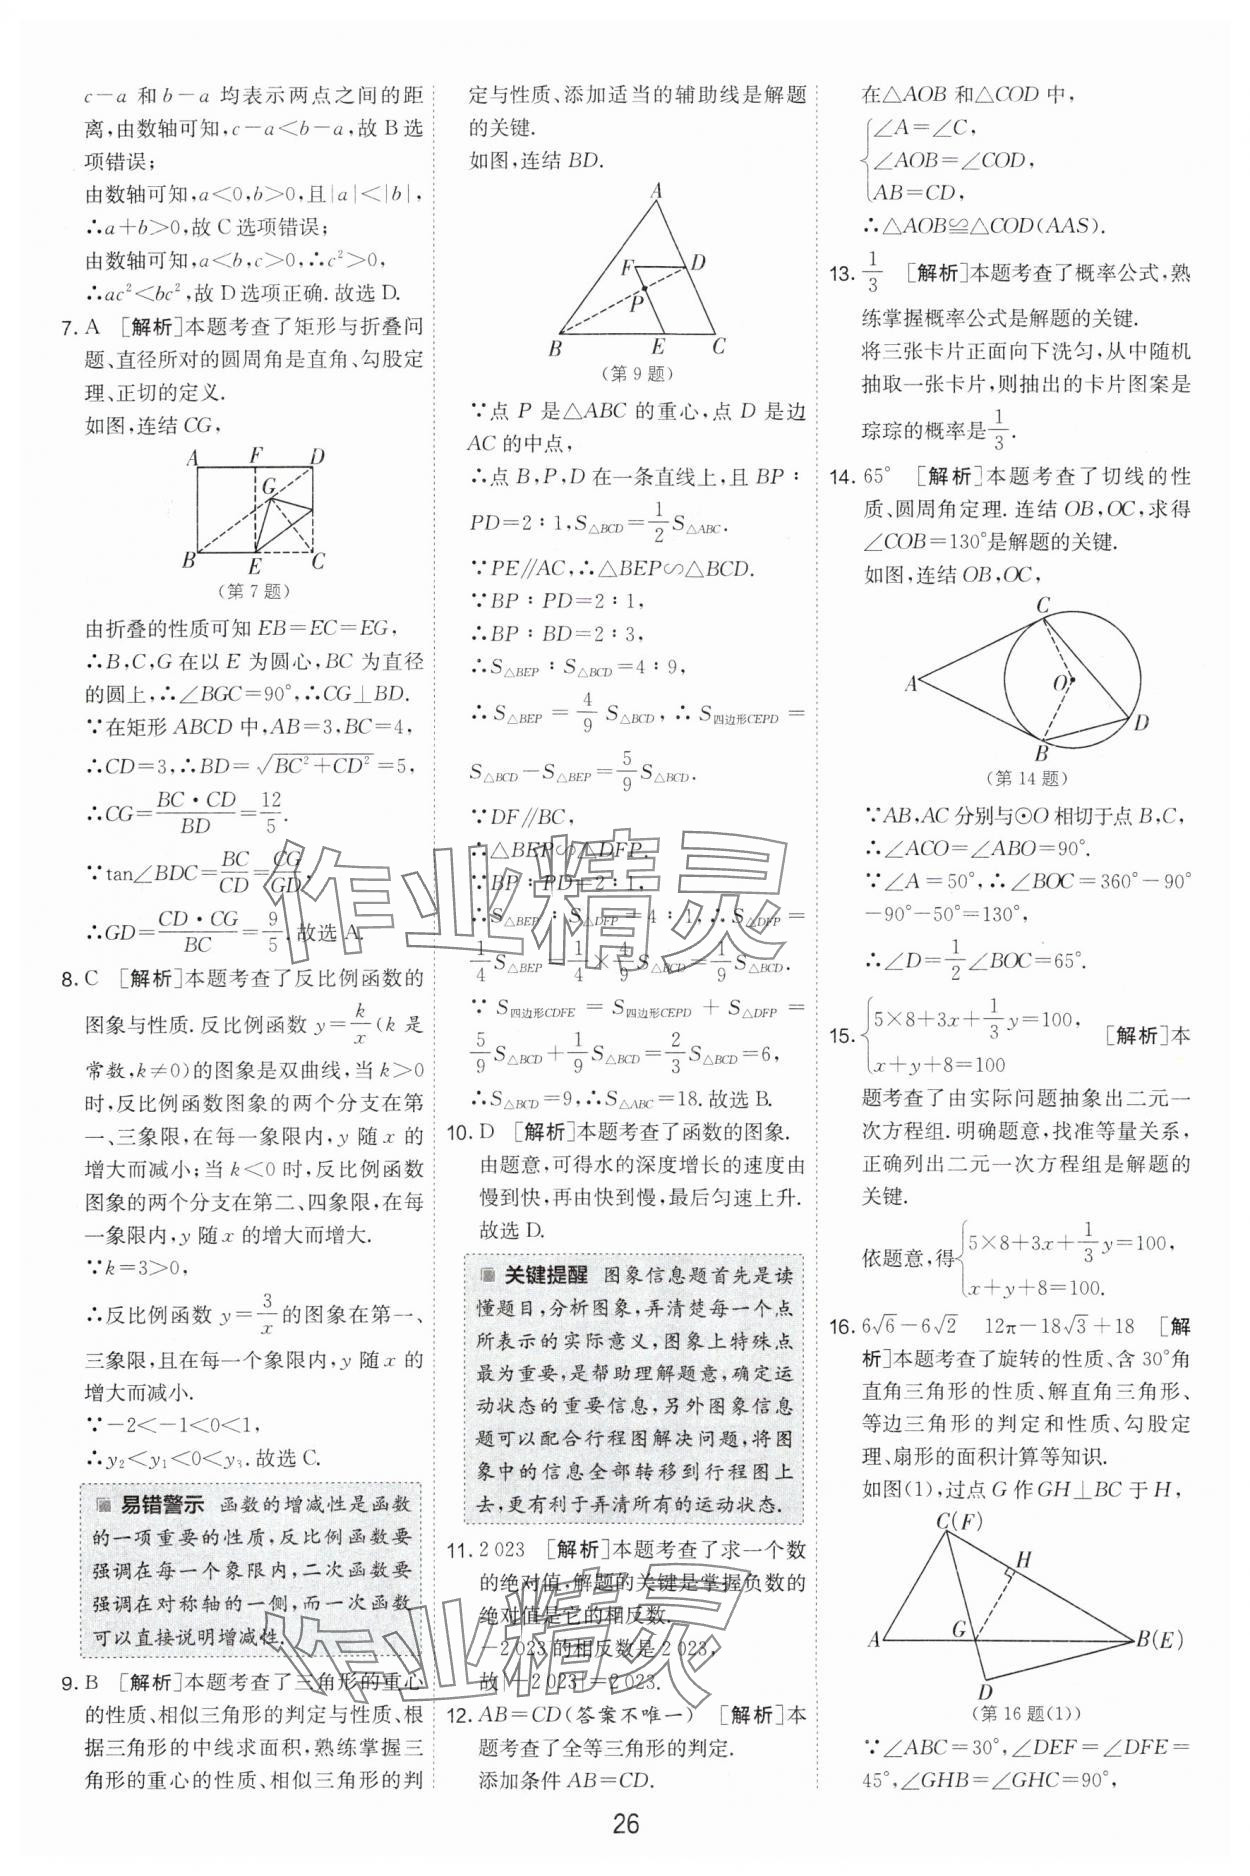 c－a 和 b－a 均表示两点之间的距
离,由数轴可知,c－a＜b－a,故 B 选
项错误;
由数轴可知,a＜0,b＞0,且|a|＜|b|,
∴a＋b＞0,故 C 选项错误;
由数轴可知,a＜b,c＞0,∴c²＞0,
∴ac²＜bc²,故 D 选项正确.故选 D.
7. A [解析]本题考查了矩形与折叠问
题、直径所对的圆周角是直角、勾股定
理、正切的定义.
如图,连结 CG,
A F D
G
B E C
(第 7 题)
由折叠的性质可知 EB＝EC＝EG,
∴B,C,G 在以 E 为圆心,BC 为直径
的圆上,∴∠BGC＝90°,∴CG⊥BD.
∵在矩形 ABCD 中,AB＝3,BC＝4,
∴CD＝3,∴BD＝√(BC²＋CD²)＝5,
∴CG＝BC·CD/BD＝12/5.
∵tan∠BDC＝BC/CD＝CG/GD,
∴GD＝CD·CG/BC＝9/5.故选 A.
8. C [解析]本题考查了反比例函数的
图象与性质.反比例函数 y＝k/x(k 是
常数,k≠0)的图象是双曲线,当 k＞0
时,反比例函数图象的两个分支在第
一、三象限,在每一象限内,y 随 x 的
增大而减小;当 k＜0 时,反比例函数
图象的两个分支在第二、四象限,在每
一象限内,y 随 x 的增大而增大.
∵k＝3＞0,
∴反比例函数 y＝3/x 的图象在第一、
三象限,且在每一个象限内,y 随 x 的
增大而减小.
∵－2＜－1＜0＜1,
∴y₂＜y₁＜0＜y₃.故选 C.
易错警示 函数的增减性是函数
的一项重要的性质,反比例函数要
强调在每一个象限内,二次函数要
强调在对称轴的一侧,而一次函数
可以直接说明增减性.
9. B [解析]本题考查了三角形的重心
的性质、相似三角形的判定与性质、根
据三角形的中线求面积,熟练掌握三
角形的重心的性质、相似三角形的判
定与性质、添加适当的辅助线是解题
的关键.
如图,连结 BD.
A
F D
P
B E C
(第 9 题)
∵点 P 是△ABC 的重心,点 D 是边
AC 的中点,
∴点 B,P,D 在一条直线上,且 BP∶
PD＝2∶1,S△BCD＝1/2 S△ABC.
∵PE∥AC,∴△BEP∽△BCD.
∵BP∶PD＝2∶1,
∴BP∶BD＝2∶3,
∴S△BEP∶S△BCD＝4∶9,
∴S△BEP＝4/9 S△BCD,∴S四边形CEPD＝
S△BCD－S△BEP＝5/9 S△BCD.
∵DF∥BC,
∴△BEP∽△DFP.
∵BP∶PD＝2∶1,
∴S△BEP∶S△DFP＝4∶1,∴S△DFP＝
1/4 S△BEP＝1/4×4/9 S△BCD＝1/9 S△BCD.
∵S四边形CDFE＝S四边形CEPD＋S△DFP＝
5/9 S△BCD＋1/9 S△BCD＝2/3 S△BCD＝6,
∴S△BCD＝9,∴S△ABC＝18.故选 B.
10. D [解析]本题考查了函数的图象.
由题意,可得水的深度增长的速度由
慢到快,再由快到慢,最后匀速上升.
故选 D.
关键提醒 图象信息题首先是读
懂题目,分析图象,弄清楚每一个点
所表示的实际意义,图象上特殊点
最为重要,是帮助理解题意,确定运
动状态的重要信息,另外图象信息
题可以配合行程图解决问题,将图
象中的信息全部转移到行程图上
去,更有利于弄清所有的运动状态.
11. 2 023 [解析]本题考查了求一个数
的绝对值,解题的关键是掌握负数的
绝对值是它的相反数.
－2 023 的相反数是 2 023,
故|－2 023|＝2 023.
12. AB＝CD(答案不唯一) [解析]本
题考查了全等三角形的判定.
添加条件 AB＝CD.
在△AOB 和△COD 中,
∠A＝∠C,
∠AOB＝∠COD,
AB＝CD,
∴△AOB≌△COD(AAS).
13. 1/3 [解析]本题考查了概率公式,熟
练掌握概率公式是解题的关键.
将三张卡片正面向下洗匀,从中随机
抽取一张卡片,则抽出的卡片图案是
琮琮的概率是 1/3.
14. 65° [解析]本题考查了切线的性
质、圆周角定理.连结 OB,OC,求得
∠COB＝130°是解题的关键.
如图,连结 OB,OC,
C
A O
D
B
(第 14 题)
∵AB,AC 分别与⊙O 相切于点 B,C,
∴∠ACO＝∠ABO＝90°.
∵∠A＝50°,∴∠BOC＝360°－90°
－90°－50°＝130°,
∴∠D＝1/2∠BOC＝65°.
15. {5×8＋3x＋1/3 y＝100,
x＋y＋8＝100 [解析]本
题考查了由实际问题抽象出二元一
次方程组.明确题意,找准等量关系,
正确列出二元一次方程组是解题的
关键.
依题意,得{5×8＋3x＋1/3 y＝100,
x＋y＋8＝100.
16. 6√6－6√2 12π－18√3＋18 [解
析]本题考查了旋转的性质、含 30°角
直角三角形的性质、解直角三角形、
等边三角形的判定和性质、勾股定
理、扇形的面积计算等知识.
如图(1),过点 G 作 GH⊥BC 于 H,
C(F)
H
A G B(E)
D
(第 16 题(1))
∵∠ABC＝30°,∠DEF＝∠DFE＝
45°,∠GHB＝∠GHC＝90°,
26
作业精灵
作业精灵